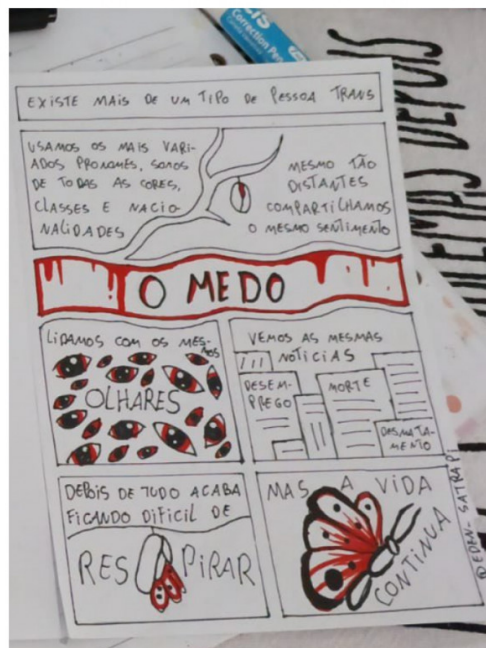 CIS
Correction Pen
EXISTE MAIS DE UM TIPO DE PESSOA TRANS
USAMOS OS MAIS VARI-
ADOS PRONOMES, SOMOS
DE TODAS AS CORES,
CLASSES E NACIO-
NALIDADES
MESMO TÃO
DISTANTES
COMPARTILHAMOS
O MESMO SENTIMENTO
O MEDO
LIDAMOS COM OS MES-
MOS
OLHARES
VEMOS AS MESMAS
NOTICIAS
DESEM-
PREGO
MORTE
DESMATA-
MENTO
DEPOIS DE TUDO ACABA
FICANDO DIFICIL DE
RESPIRAR
MAS A VIDA
CONTINUA
@EDEN_SATRAPI
DEPOIS